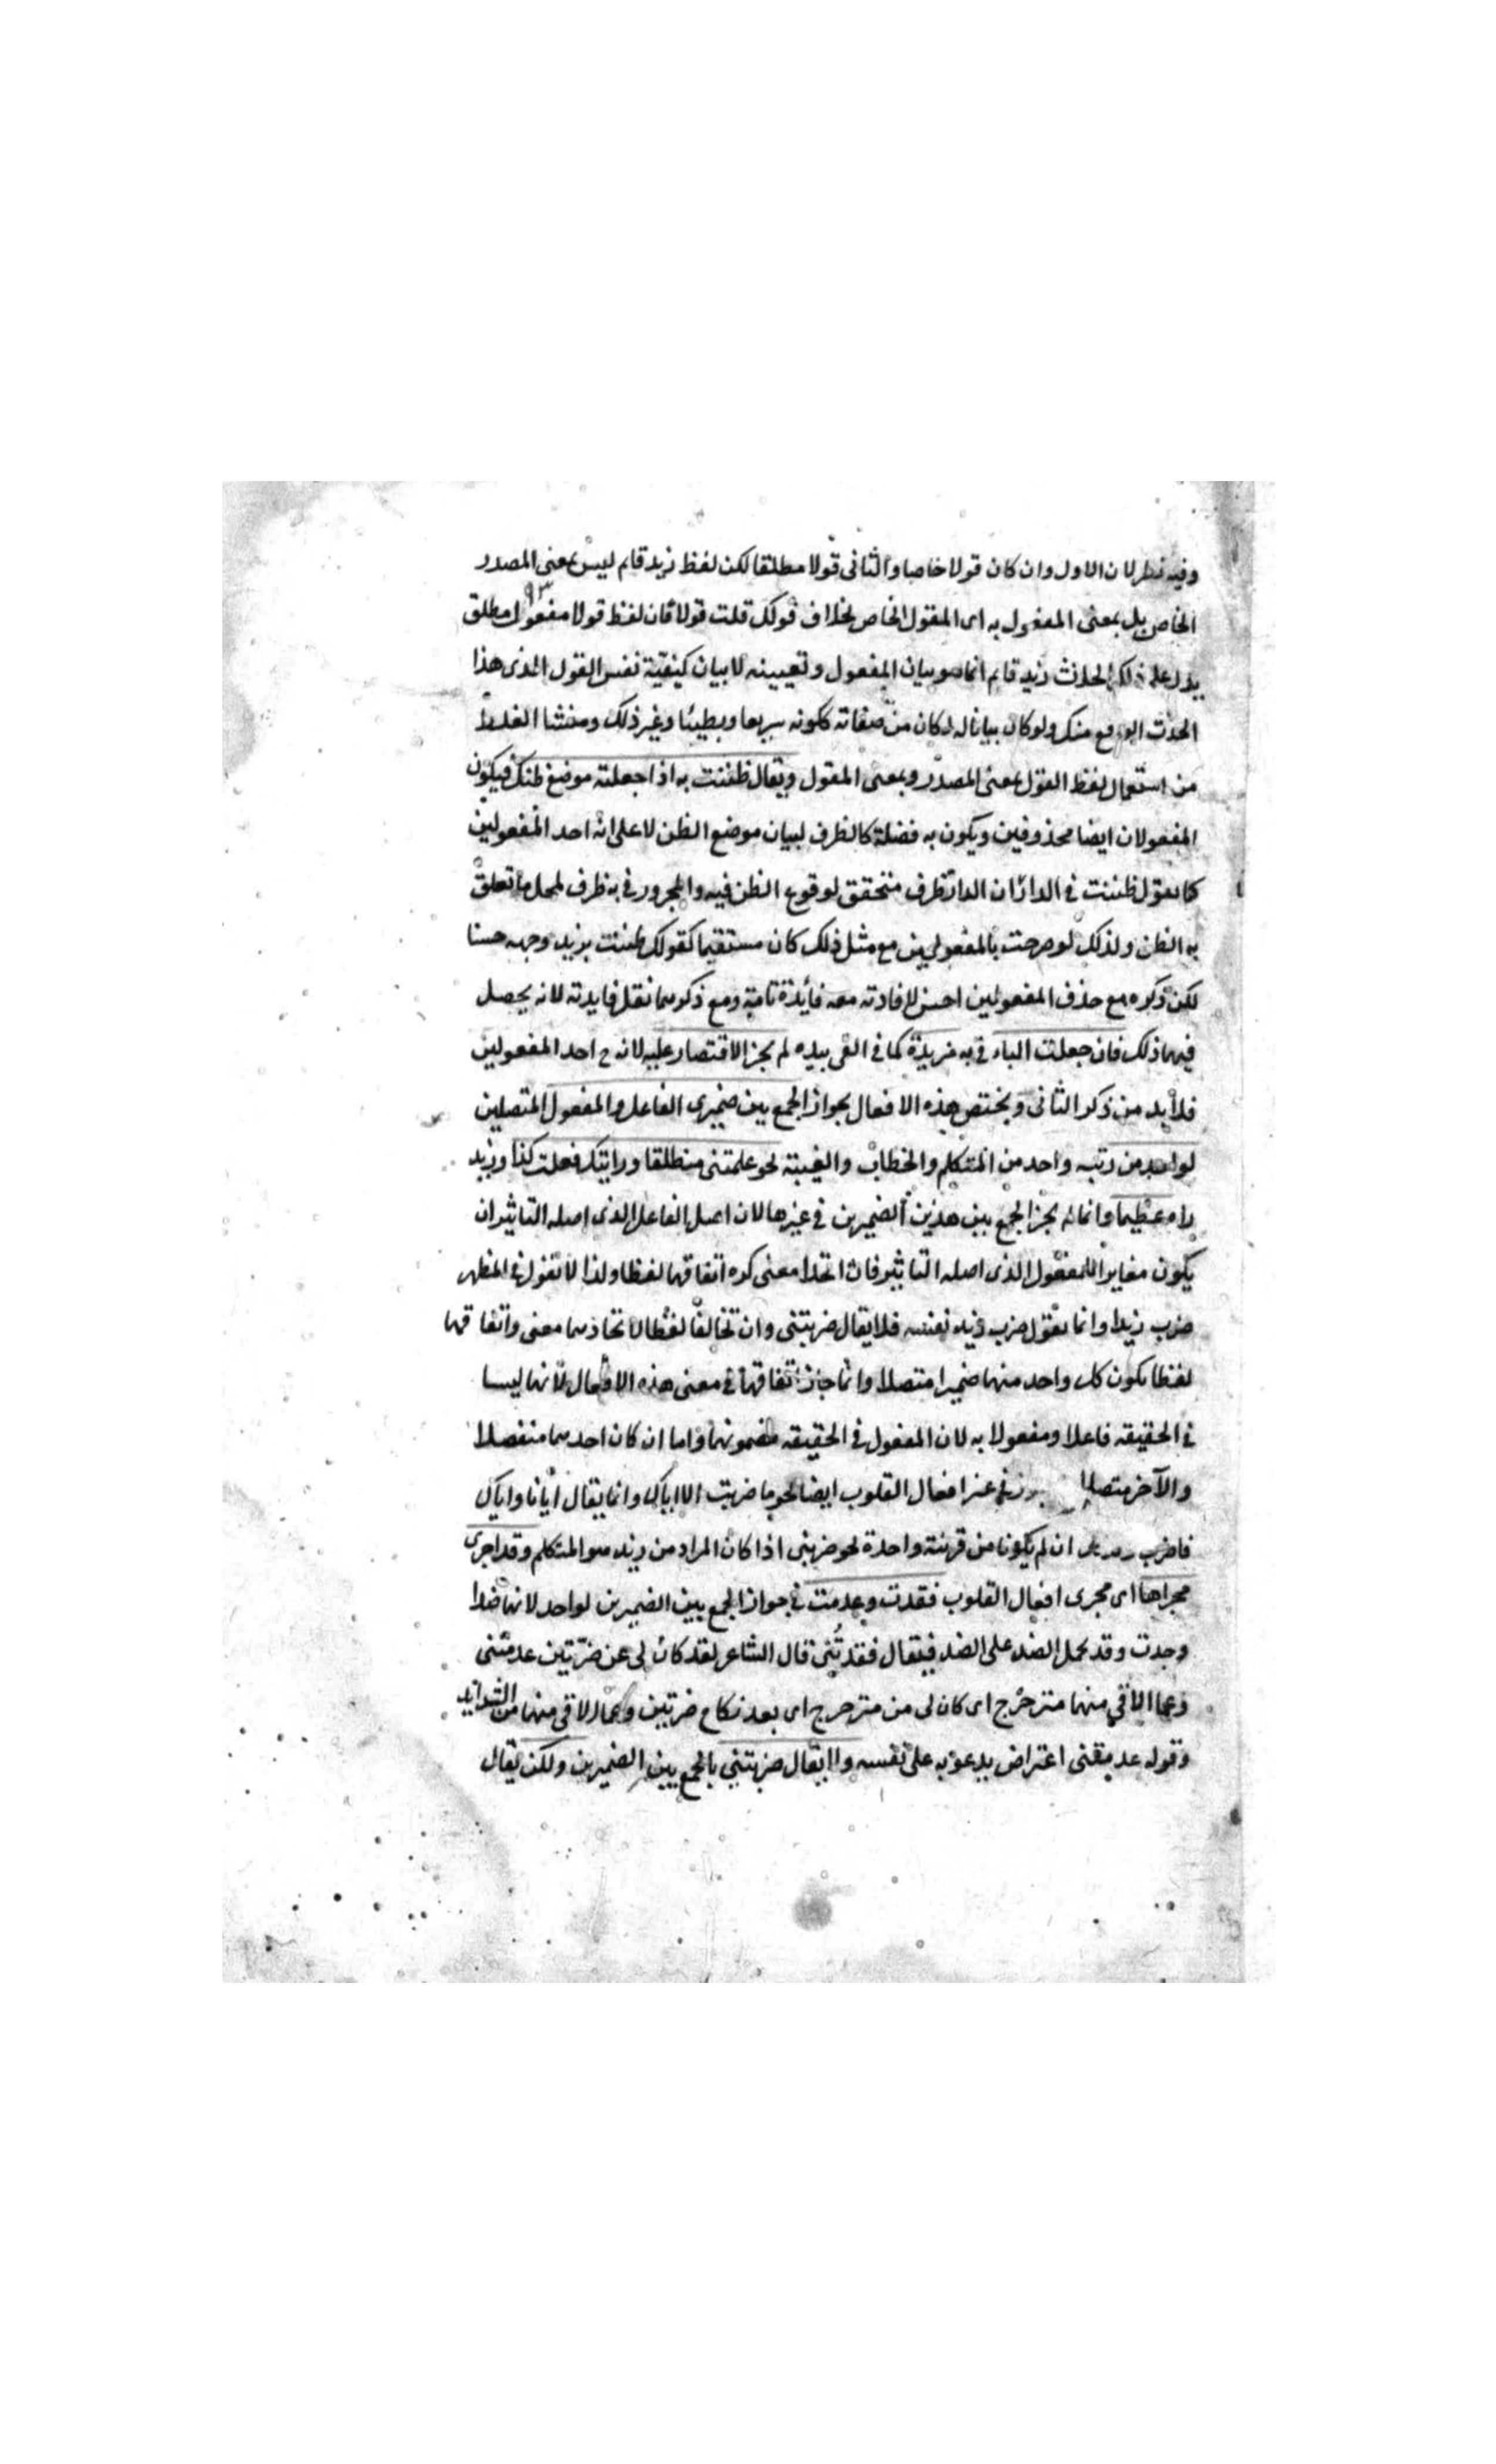 وفيه نظر لان الاول وان كان قولا خاصا والثانى قولا مطلقا لكن لفظ زيد قايم ليس بمعنى المصدر
٩٣
الخاص بل بمعنى المفعول به اى المقول الخاص بخلاف قولك قلت قولا فان لفظ قولا مفعول مطلق
يدل على ذلك الحدث زيد قايم انما هو بيان المفعول وتعيينه لا بيان كيفية نفس القول الذى هذا
الحدث الواقع منك ولو كان بيانا له لكان من صفاته ككونه سريعا وبطيئا وغير ذلك ومنشا الغلط
من استعمال لفظ القول بمعنى المصدر وبمعنى المقول ويقال ظننت به اذا جعلته موضع ظنك فيكون
المفعولان ايضا محذوفين ويكون به فضلة كالظرف لبيان موضع الظن لا على انه احد المفعولين
كما تقول ظننت فى الدار ان الدار ظرف متحقق لوقوع الظن فيه والمجرور فى به ظرف لمحل ما تعلق
به الظن ولذلك لو صرحت بالمفعولين مع مثل ذلك كان مستقيما كقولك ظننت بزيد وجهه حسنا
لكن ذكره مع حذف المفعولين احسن لافادته معه فائدة تامة ومع ذكرهما تقل فايدته لانه يحصل
فيهما ذلك فان جعلت الباء فى به مزيدة كما فى القى بيده لم يجز الاقتصار عليه لانه ح احد المفعولين
فلا بد من ذكر الثانى ويختص هذه الافعال بجواز الجمع بين ضميرى الفاعل والمفعول المتصلين
لواحد من رتبه واحد من المتكلم والخطاب والغيبة نحو علمتنى منطلقا ورايتك فعلت كذا وزيد
راه عظيما وانما لم يجز الجمع بين هذين الضميرين فى غيرها لان اصل الفاعل الذى اصله التاثير ان
يكون مغايرا للمفعول الذى اصله التاثير فان اتحدا معنى كره اتفاقهما لفظا ولذا لا تقول فى المظهر
ضرب زيد زيدا وانما تقول ضرب زيد نفسه فلا يقال ضربتنى وان تخالفا لفظا لاتحادهما معنى واتفاقهما
لفظا بكون كل واحد منهما ضميرا متصلا وانما جاز اتفاقهما فى معنى هذه الافعال لانهما ليسا
فى الحقيقه فاعلا ومفعولا به لان المفعول فى الحقيقه مضمونهما واما ان كان احدهما منفصلا
والآخر متصلا فى غير افعال القلوب ايضا نحو ما ضربت الا اياك وانما يقال ايانا واياك
فاضرب ان لم يكونا من قرينة واحدة نحو ضربنى اذا كان المراد من زيد هو المتكلم وقد اجرى
مجراها اى مجرى افعال القلوب فقدت وعدمت فى جواز الجمع بين الضميرين لواحد لانهما ضدا
وجدت وقد يحمل الضد على الضد فيقال فقدتنى قال الشاعر لقد كان لى عن ضرّتين عدمتنى
وعما الاقي منهما متزحزح اى كان لى من متزحزح اى بعد نكاح ضرتين وعما الاقى منهما من الشدايد
وقوله عدمتنى اعتراض يدعو به على نفسه ولا يقال ضربتنى بالجمع بين الضميرين ولكن يقال